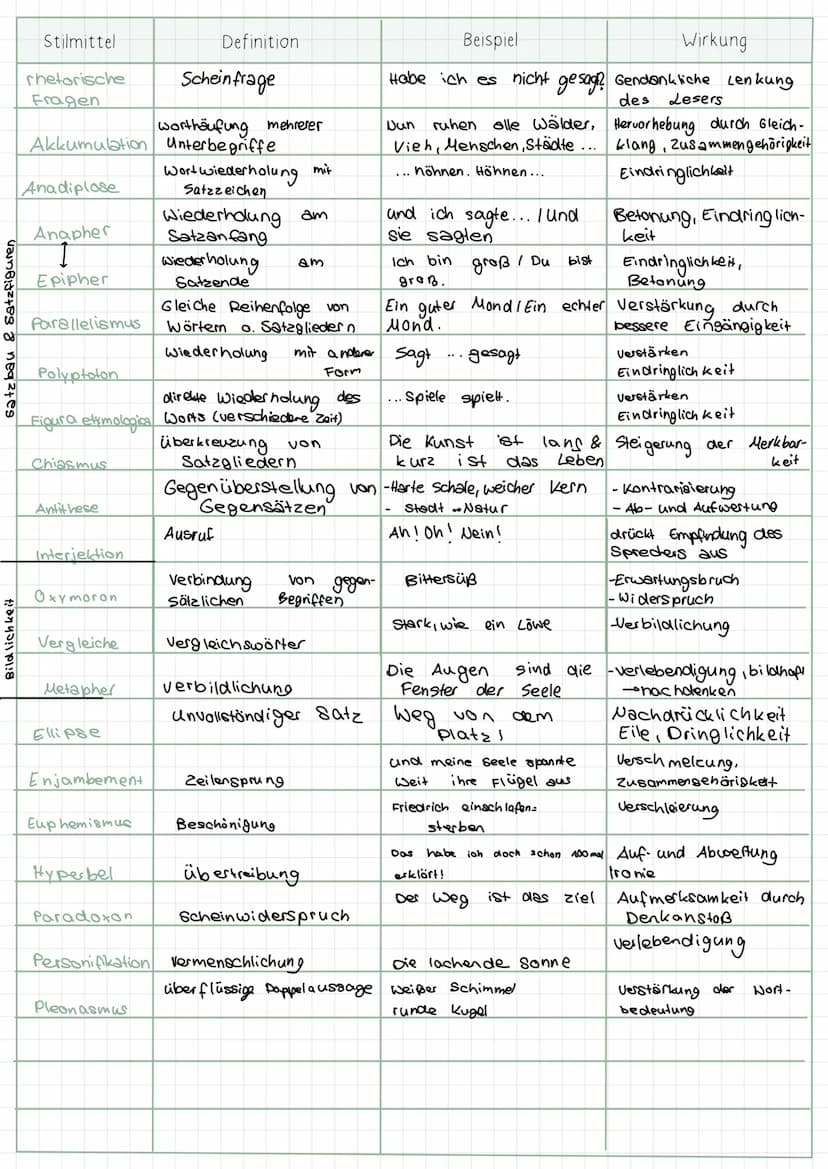 Stilmittel
Definition
Beispiel
Wirkung
rhetorische
Fragen
Scheinfrage
Habe ich es nicht gesagt?
Gendankliche Lenkung
des Lesers
Akkumulation
Worthäufung mehrerer
Unterbegriffe
Nun ruhen alle Wälder,
Vieh, Menschen, Städte ...
Hervorhebung durch Gleich-
klang, Zusammengehörigkeit
Anadiplose
Wortwiederholung mit
Satzzeichen
... höhnen. Höhnen...
Eindringlichkeit
Satzbau & Satzfiguren
Anapher
Wiederholung am
Satzanfang
und ich sagte... / Und
sie sagten
Betonung, Eindringlich-
keit
Epipher
Wiederholung am
Satzende
Ich bin groß / Du bist
groß.
Eindringlichkeit,
Betonung
Parallelismus
Gleiche Reihenfolge von
Wörtern o. Satzgliedern
Ein guter Mond / Ein echter
Mond.
Verstärkung durch
bessere Eingängigkeit
Polyptoton
Wiederholung mit anderer
Form
Sagt ... gesagt
verstärken
Eindringlichkeit
Figura etymologica
direkte Wiederholung des
Worts (verschiedene Zeit)
... Spiele spielt.
verstärken
Eindringlichkeit
Chiasmus
Überkreuzung von
Satzgliedern
Die Kunst ist lang &
kurz ist das Leben
Steigerung der Merkbar-
keit
Antithese
Gegenüberstellung von
Gegensätzen
- Harte Schale, weicher Kern
- Stadt ↔ Natur
- Kontrarisierung
- Ab- und Aufwertung
Interjektion
Ausruf
Ah! Oh! Nein!
drückt Empfindung des
Sprechers aus
Bildlichkeit
Oxymoron
Verbindung von gegen-
sätzlichen Begriffen
Bittersüß
- Erwartungsbruch
- Widerspruch
Vergleiche
Vergleichswörter
Stark, wie ein Löwe
- Verbildlichung
Metapher
Verbildlichung
Die Augen sind die
Fenster der Seele
- Verlebendigung, bildhaft
→ nachdenken
Ellipse
Unvollständiger Satz
Weg von dem
Platz!
Nachdrücklichkeit
Eile, Dringlichkeit
Enjambement
Zeilensprung
Und meine Seele spannte
Weit ihre Flügel aus
Verschmelzung,
Zusammengehörigkeit
Euphemismus
Beschönigung
Friedrich einschlafen =
sterben
Verschleierung
Hyperbel
Übertreibung
Das habe ich doch schon 100mal
erklärt!
Auf- und Abwertung
Ironie
Paradoxon
Scheinwiderspruch
Der Weg ist das ziel
Aufmerksamkeit durch
Denkanstoß
Personifikation
Vermenschlichung
Die lachende Sonne
Verlebendigung
Pleonasmus
überflüssige Doppelaussage
Weißer Schimmel
runde Kugel
Verstärkung der Wort-
bedeutung